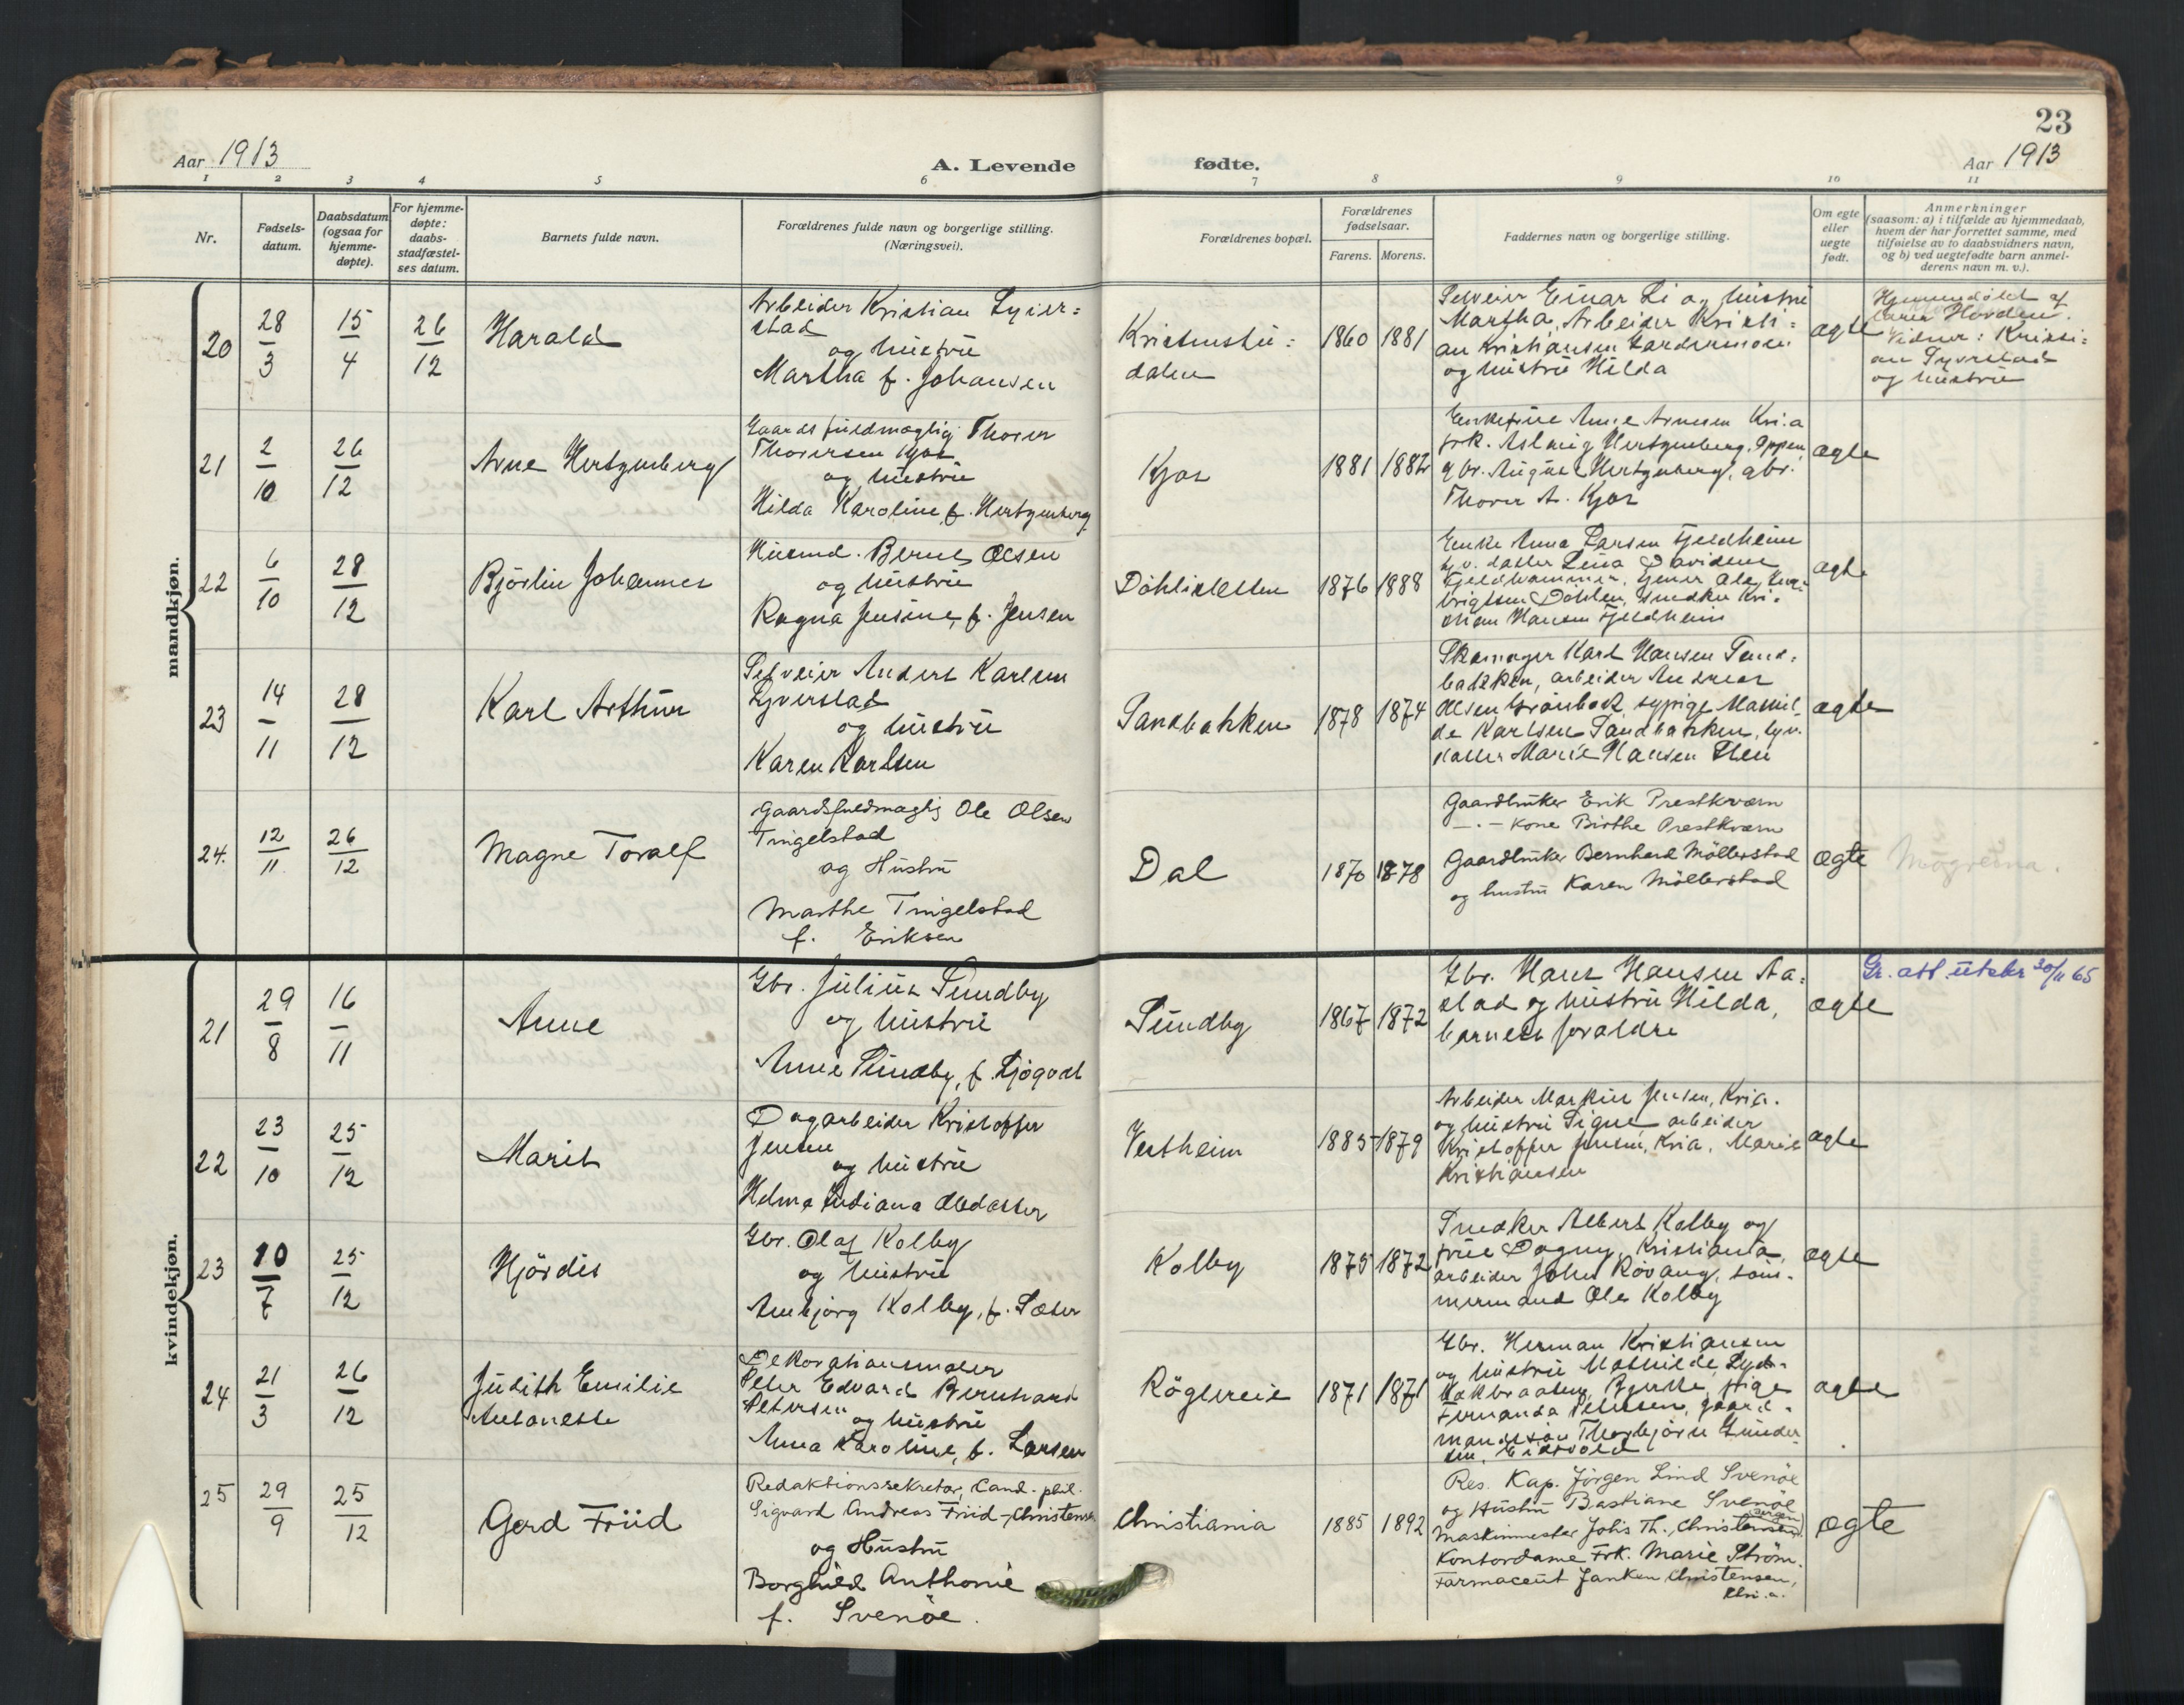 23
Aar 1913
A. Levende
fødte.
Aar 1913
1 2 3 4 5 6 7 8 9 10 11
Nr.
Fødsels-
datum.
Daabsdatum
(ogsaa for
hjemme-
døpte).
For hjemme-
døpte:
daabs-
stadfæstel-
ses datum.
Barnets fulde navn.
Forældrenes fulde navn og borgerlige stilling.
(Næringsvei).
Forældrenes bopæl.
Forældrenes
fødselsaar.
Farens. Morens.
Faddernes navn og borgerlige stilling.
Om egte
eller
uegte
født.
Anmerkninger
(saasom: a) i tilfælde av hjemmedaab,
hvem der har forrettet samme, med
tilføielse av to daabsvidners navn,
og b) ved uegtefødte barn anmel-
derens navn m. v.).
mandkjøn.
20
28/3
15/4
26/12
Harald
Arbeider Kristian
stad
og hustru
Martha f. Johansen
Kristinslu=
dalen
1860 1881
Selveier Einar Li og hustru
Martha, Arbeider Kristi=
an Kristiansen Gardermoen
og hustru Hilda
ægte
Hjemmedøbt af
Horden.
Vidner: Kristi=
an
og hustru
21
2/10
26/12
Arne Hertzenberg
Gaardsfuldmægtig Thorer
Thorersen Kjos
og hustru
Hilda Karoline, f. Hertzenberg
Kjos
1881 1882
Enkefrue Anne Arnesen Kri.a
frk. Aslaug Hertzenberg,
gbr. August Hertzenberg, gbr.
Thorer A. Kjos
ægte
22
6/10
28/12
Björlin Johannes
Husmd. Bernt Olsen
og hustru
Ragna Jensine, f. Jensen
Döhlisletten
1876 1888
Enke Anna Larsen Fjeldheim
datter Lina Davidsen
Fjeldhammer,
Dohlen, snedker Kri-
stian Hansen Fjeldheim
ægte
23
14/11
28/12
Karl Arthur
Selveier Anders Karlsen
og hustru
Karen Karlsen
Sandbakken
1878 1874
Skomager Karl Hansen Sand=
bakken, arbeider Andreas
Olsen Grönbæk, sypige Mathil-
de Karlsen Sandbakken, tyv.
datter Marie Hansen
ægte
24.
12/11
26/12
Magne Toralf
Gaardsfuldmægtig Ole Olsen
Tingelstad
og Hustru
Marthe Tingelstad
f. Eriksen
Dal
1870 1878
Gaardbruker Erik Prestkværn
— . — Kone Birthe Prestkværn
Gaardbruker Bernhard Möllerstad
og hustru Karen Möllerstad
ægte
Mogreina.
kvindekjøn.
21
29/8
16/11
Anne
Gbr. Julius Sundby
og hustru
Anne Sundby, f. Ljögodt
Sundby
1867 1872
Gbr. Hans Hansen Aa=
stad og hustru Hilda,
barnets forældre
ægte
Gr. att. utskr 30/11 65
22
23/10
25/12
Marit
Dagarbeider Kristoffer
Jensen
og hustru
Helma Indiana Olsdatter
Vestheim
1885 1879
Arbeider Martin Jensen, Kria.
og hustru Signe, arbeider
Kristoffer Jensen, Kria, Marie
Kristiansen
ægte
23
10/7
25/12
Hjördis
Gbr. Olaf Kolby
og hustru
Anbjörg Kolby, f. Sæter
Kolby
1875 1872
Snedker Albert Kolby og
frue Dagny, Kristiania,
arbeider Johan Rovang, töm-
mermand Ole Kolby
ægte
24
21/3
26/12
Judith Emilie
Antonette
Dekorationsmaler
Peter Edvard Bernhard
Petersen
og hustru
Anna Karoline, f. Larsen
Röglereie
1871 1871
Gbr. Herman Kristiansen
og hustru Mathilde
Bjerke, pige
Fernanda Petersen, gaard-
mandssön Thorbjörn Gunder-
sen, Eidsvold
ægte
25
29/9
25/12
Gerd Friid
Redaktionssekretær, Cand. phil.
Sigvard Andreas Friid-Christensen
og Hustru
Borghild Anthonie
f. Svenöe.
Christiania
1885 1892
Res. Kap. Jörgen Lind Svenöe
og Hustru Bastiane Svenöe
Maskinmester Johs Th. Christensen Bergen
Kontordame Frk. Marie Ström.
Farmaceut Janken Christensen,
Chri.a.
ægte